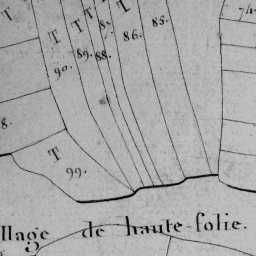 T T T T T
90. 89. 88. 87. 86. 85.
8.
T
99.
llage de haute-folie.